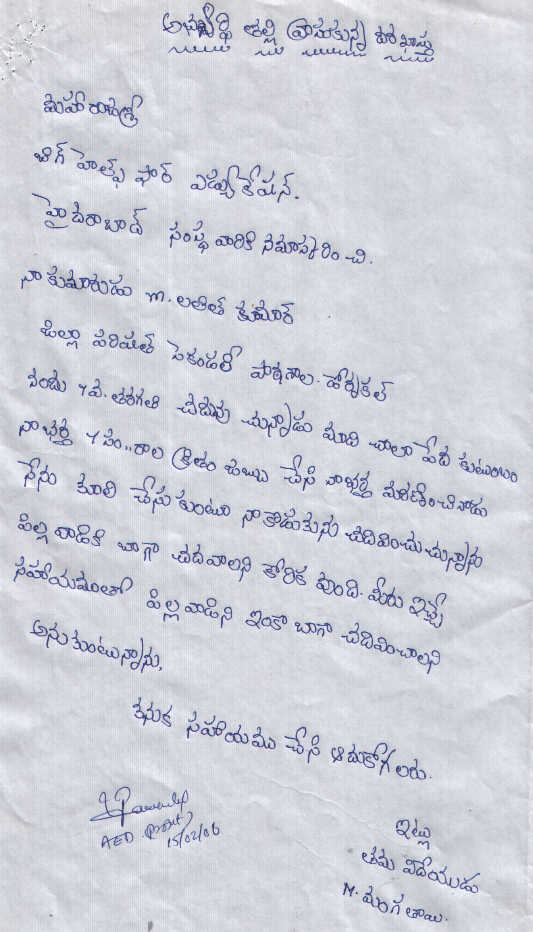 అభ్యర్థి తల్లి వ్రాసుకున్న దరఖాస్తు
మహారాజశ్రీ
బిగ్ హెల్ప్ ఫార్ ఎడ్యుకేషన్.
హైదరాబాద్ సంస్థ వారికి నమస్కరించి.
నా కుమారుడు m. లలిత్ కుమార్
జిల్లా పరిషత్ సెకండరీ పాఠశాల.
నందు 7వ. తరగతి చదువు చున్నాడు మాది చాలా పేద కుటుంబం
నా భర్త 7 సం..రాల క్రితం జబ్బు చేసి నాభర్త మరణించినాడు
నేను కూలి చేసుకుంటూ నా కొడుకును చదివించుచున్నాను
పిల్ల వాడికి బాగా చదవాలని కోరిక వుంది. మీరు ఇచ్చే
సహాయముతో పిల్ల వాడిని ఇంకా బాగా చదివించాలని
అనుకుంటున్నాను,
కనుక సహాయము చేసి ఆదుకోగలరు.
15/02/06
ఇట్లు
తమ విదేయుడు
M. మంగ తాయి.